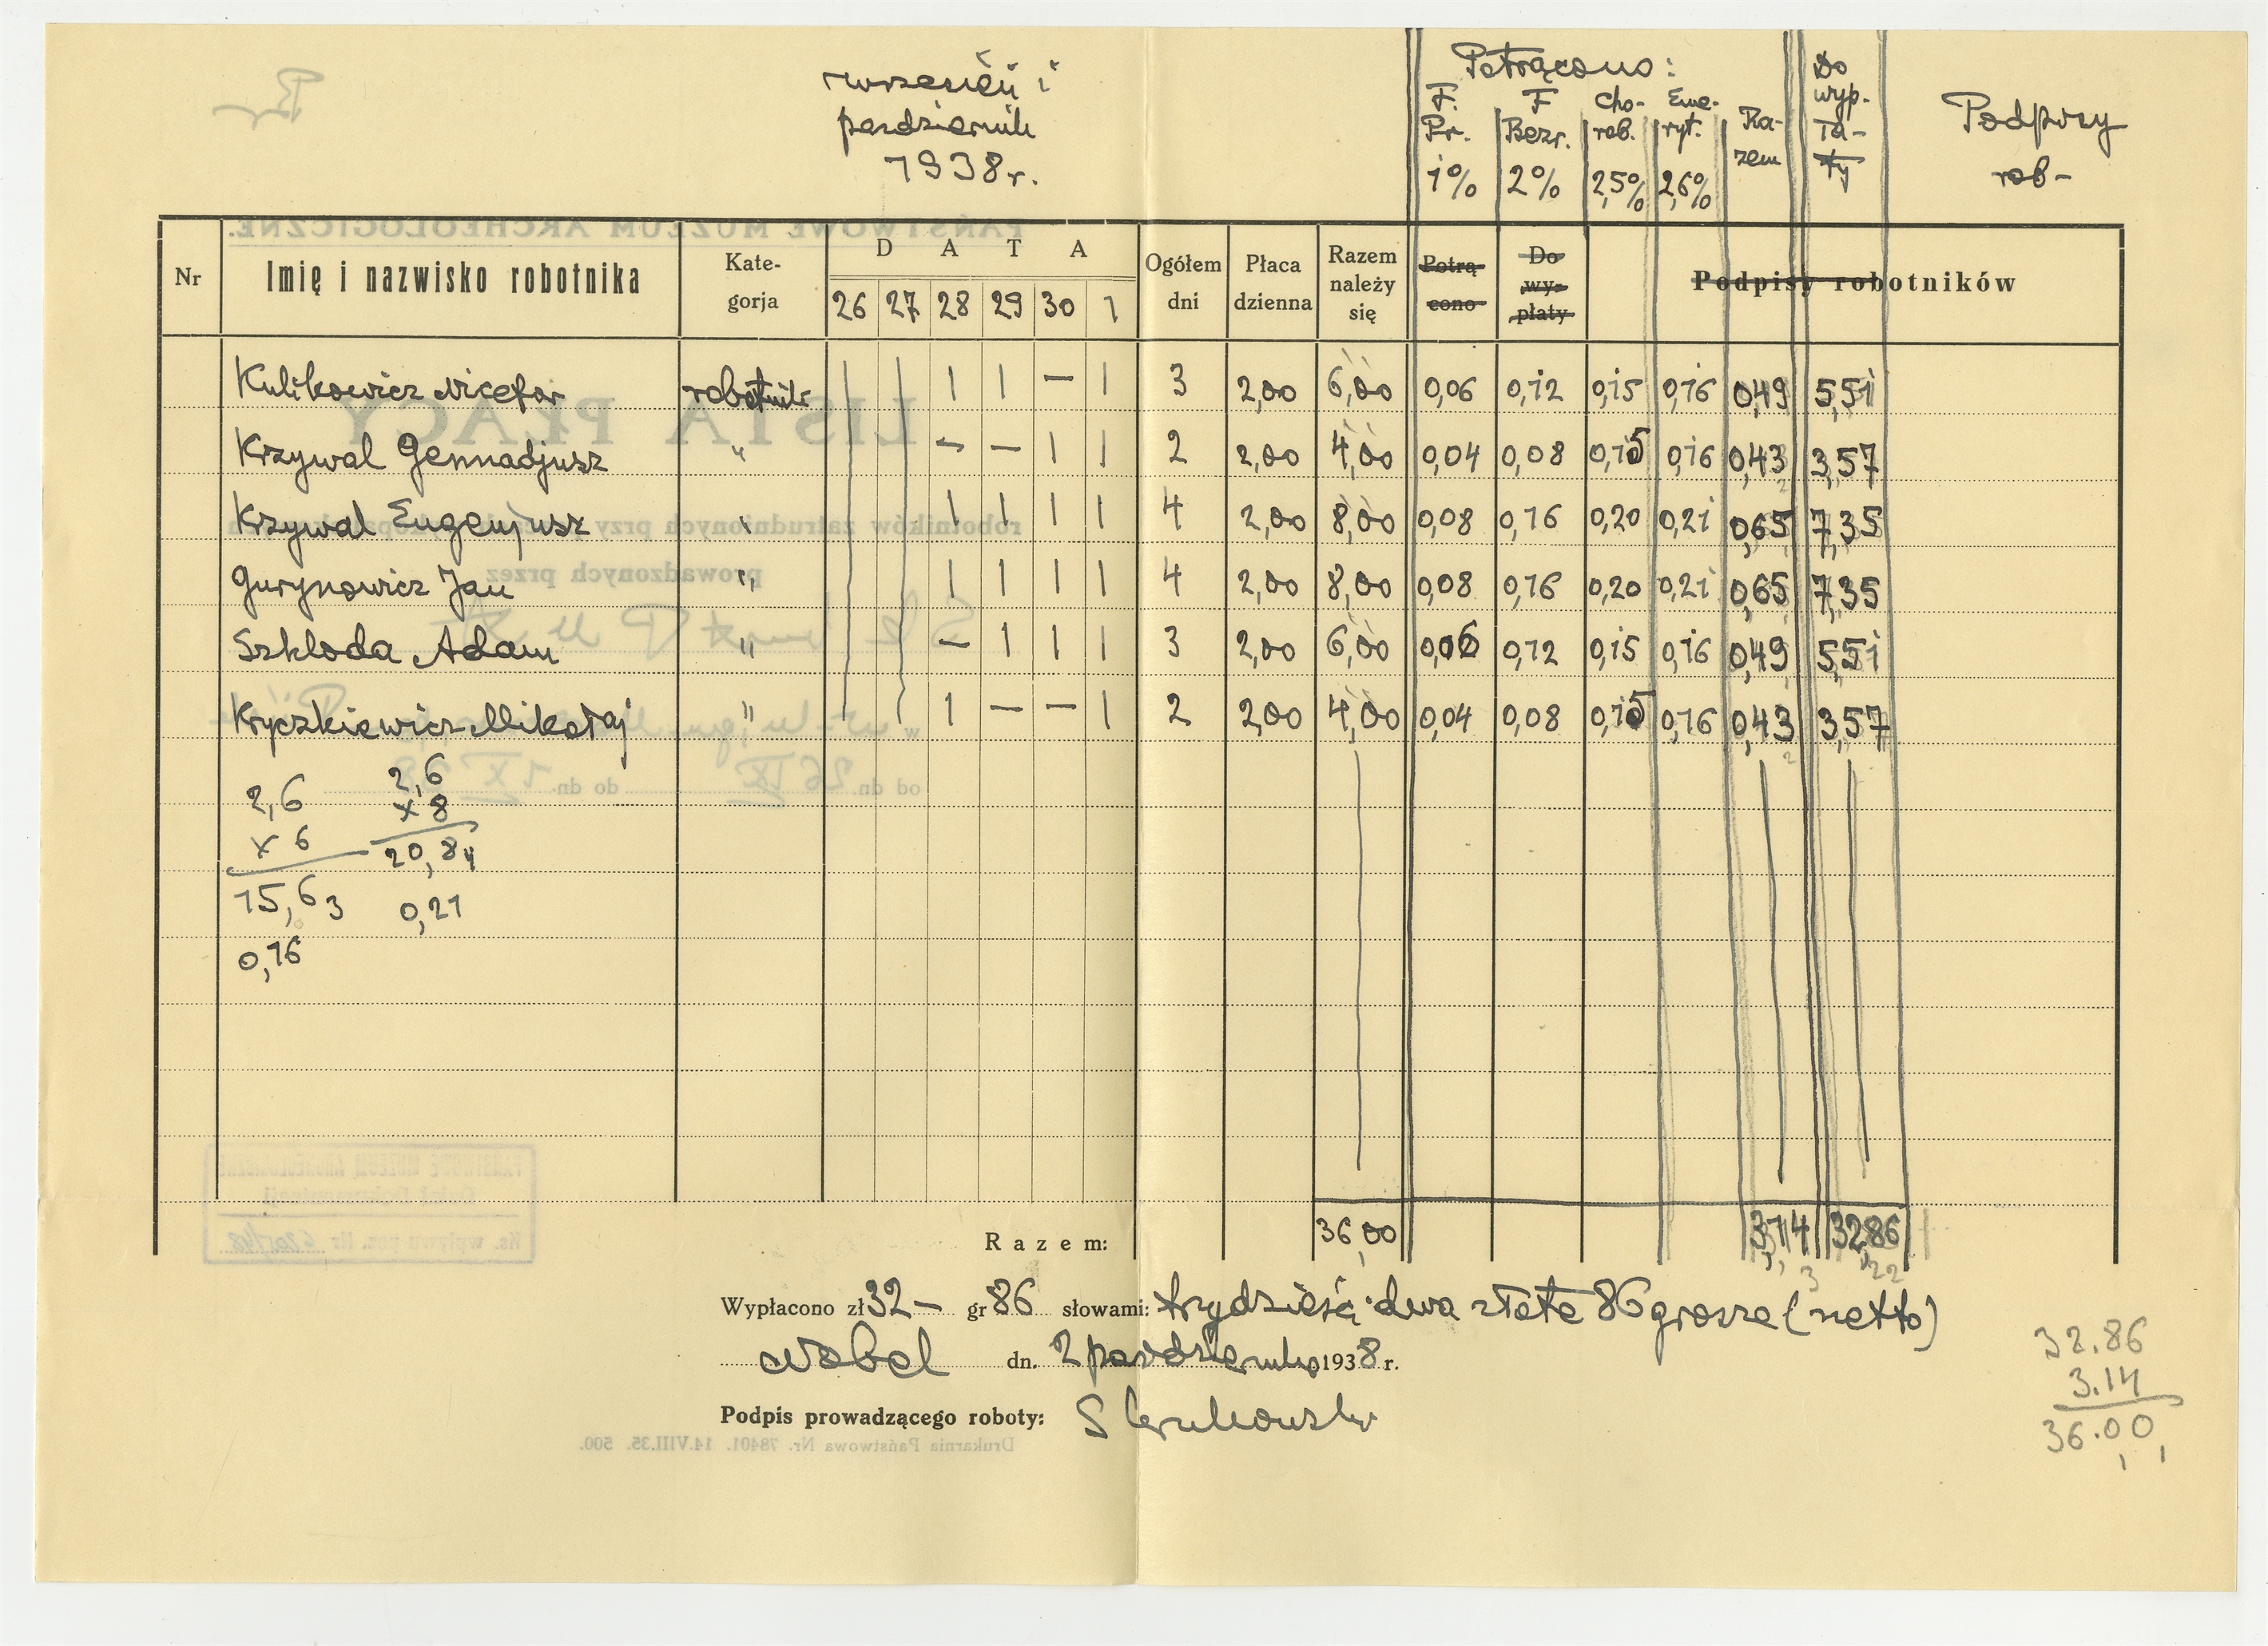 wrzesień i
październik
1938 r.
Potrącono:
F. Pr. 1% F Bezr. 2% Cho-rob. 2,5% Eme-ryt. 2,6% Ra-zem Do wyp-ła-ty Podpisy rob-
Nr Imię i nazwisko robotnika Kate-gorja DATA 26 27 28 29 30 1 Ogółem dni Płaca dzienna Razem należy się Potrą cono Do wy- płaty Podpisy robotników
Kulikowicz Nicefor robotnik | | — | 3 2,00 6,00 0,06 0,12 0,15 0,16 0,49 5,51
Krzywal Gennadjusz " — — | | 2 2,00 4,00 0,04 0,08 0,15 0,16 0,43 3,57
Krzywal Eugenjusz " | | | | 4 2,00 8,00 0,08 0,16 0,20 0,21 0,65 7,35
Gurynowicz Jan " | | | | 4 2,00 8,00 0,08 0,16 0,20 0,21 0,65 7,35
Szkloda Adam " — | | | 3 2,00 6,00 0,06 0,12 0,15 0,16 0,49 5,51
Kryczkiewicz Mikołaj " | — — | 2 2,00 4,00 0,04 0,08 0,15 0,16 0,43 3,57
2,6 2,6
x 6 x 8
15,6 20,8
0,21
0,16
Razem: 36,00 3,14 32,86
Wypłacono zł 32 — gr 86 słowami: trzydzieści dwa złote 86 grosze (netto)
dn. 2 października 1938 r.
Podpis prowadzącego roboty:
32.86
3.14
36.00
PAŃSTWOWE MUZEUM ARCHEOLOGICZNE.
LISTA PŁACY
robotników zatrudnionych przy
prowadzonych przez
od dn. 26 IX do dn. 1 X 38
Drukarnia Państwowa Nr. 78401. 14.VIII.35. 500.